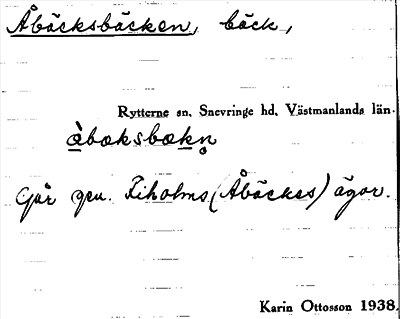 Åbäcksbäcken, bäck,
Rytterne sn. Snevringe hd. Västmanlands län.
àbœksbœkn̥
Går gm. Tiholms (Åbäckes) ägor.
Karin Ottosson 1938.